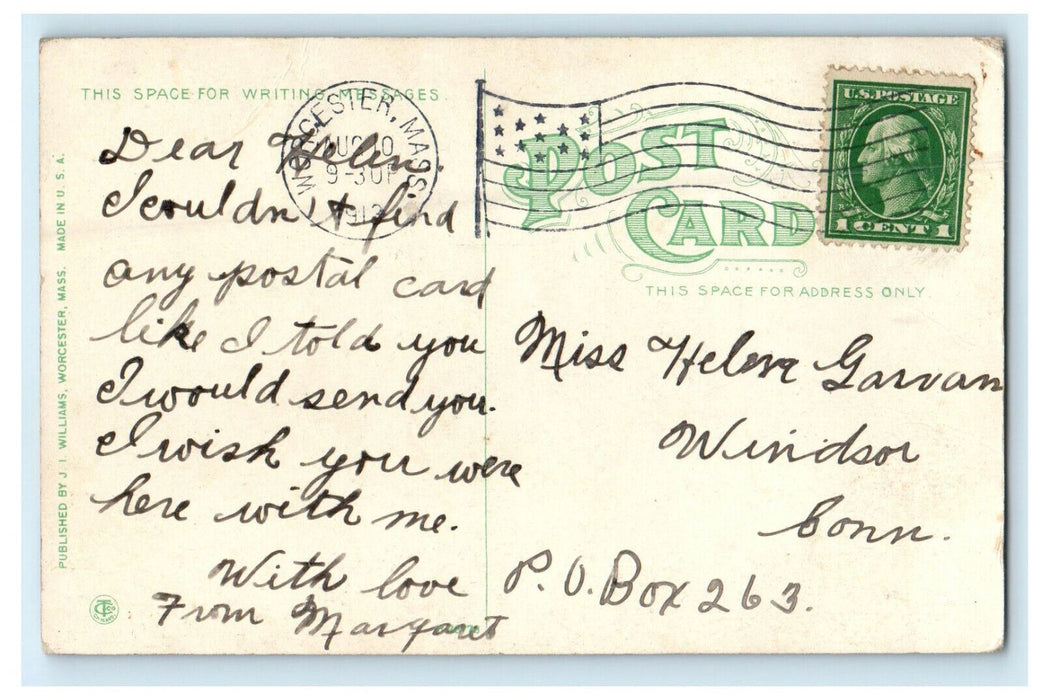 THIS SPACE FOR WRITING MESSAGES.
Dear Helen.
I couldn't find
any postal card
like I told you
I would send you.
I wish you were
here with me.
With love
From Margaret
WORCESTER, MASS.
AUG 10
9-30P
191
U.S. POSTAGE
1 CENT 1
POST CARD
THIS SPACE FOR ADDRESS ONLY.
Miss Helena Garvan
Windsor
Conn.
P.O. Box 263.
PUBLISHED BY J. I. WILLIAMS, WORCESTER, MASS. MADE IN U. S. A.